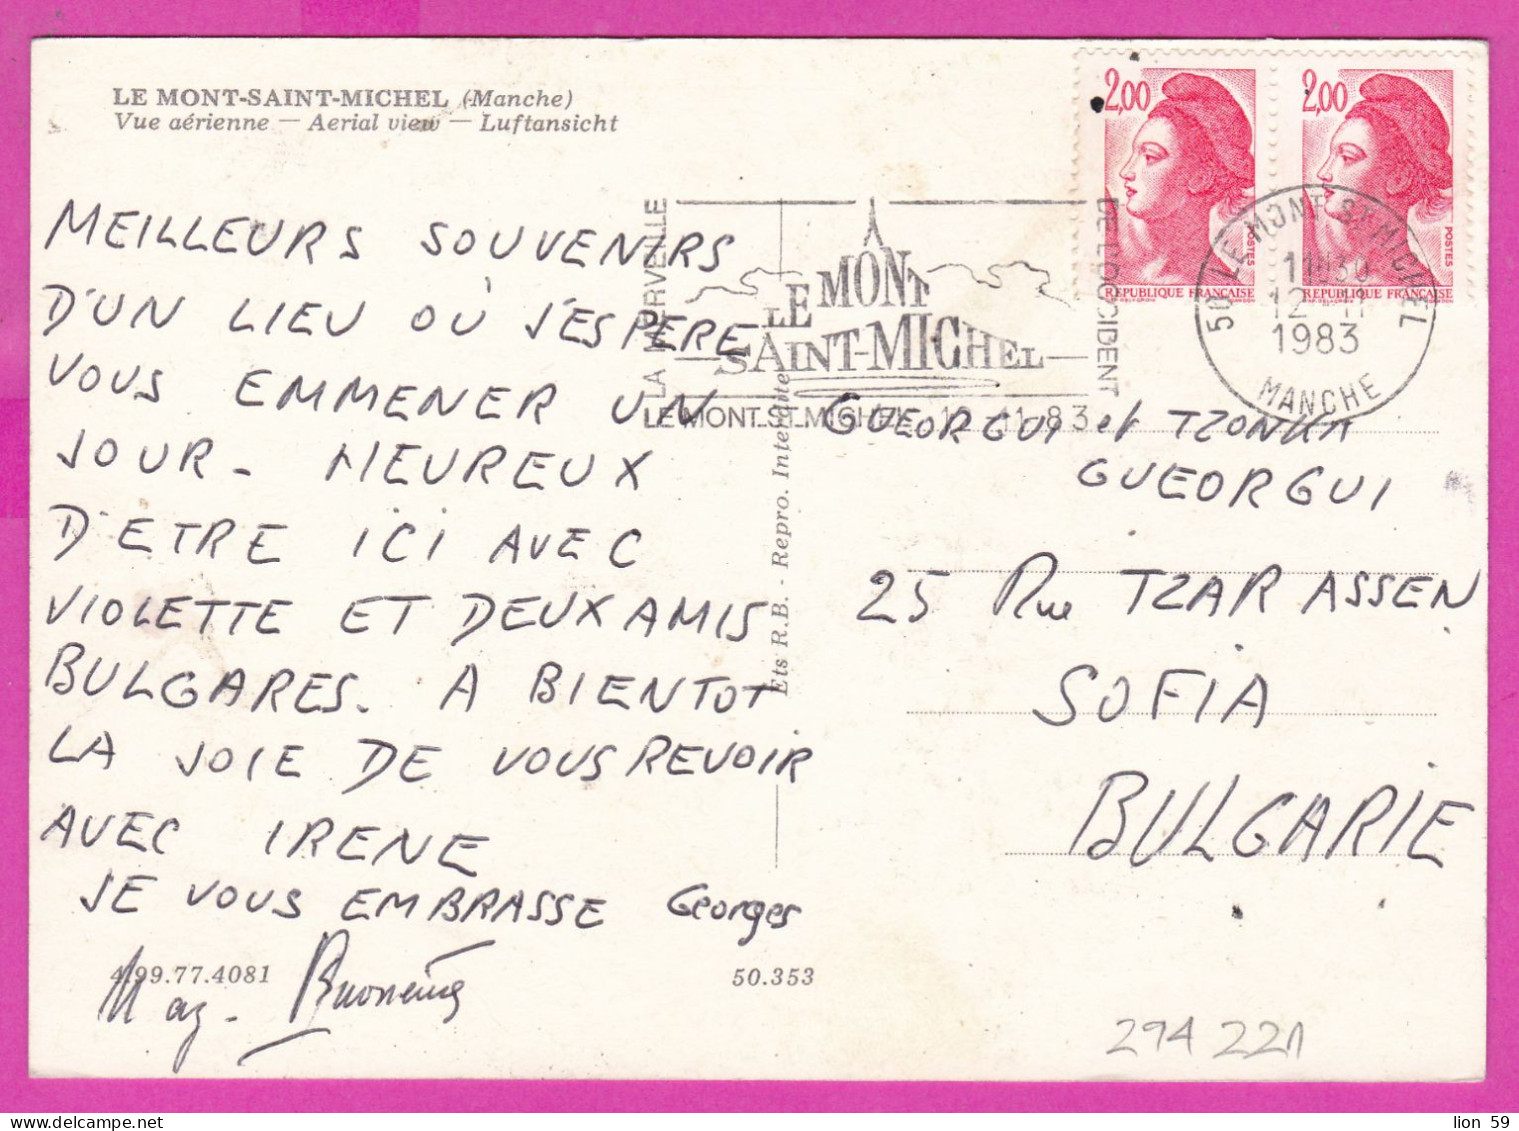 LE MONT-SAINT-MICHEL (Manche)
Vue aérienne — Aerial view — Luftansicht
2,00
REPUBLIQUE FRANÇAISE
POSTES
2,00
REPUBLIQUE FRANÇAISE
POSTES
LA MERVEILLE
LE MONT
SAINT-MICHEL
DE L'OCCIDENT
LE MONT ST MICHEL 12.11.83
50 LE MONT ST MICHEL
11H30
12-11
1983
MANCHE
MEILLEURS SOUVENIRS
D'UN LIEU OÙ J'ESPERE
VOUS EMMENER UN
JOUR - HEUREUX
D'ETRE ICI AVEC
VIOLETTE ET DEUX AMIS
BULGARES. A BIENTOT
LA JOIE DE VOUS REVOIR
AVEC IRENE
JE VOUS EMBRASSE Georges
Ets R.B. - Repro. Interdite
GUEORGUI et TZONKA
GUEORGUI
25 Rue TZAR ASSEN
SOFIA
BULGARIE
4.99.77.4081
50.353
294221
lion 59